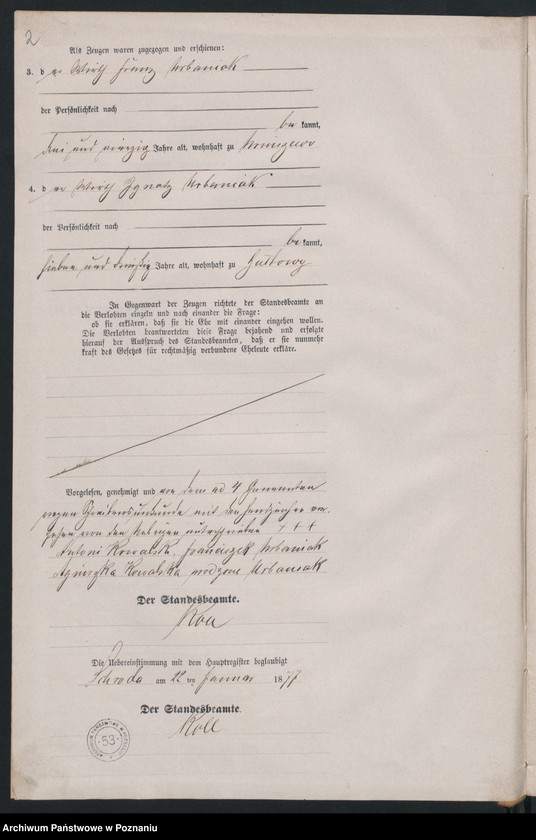 2
Als Zeugen waren zugezogen und erschienen:
3. der Wirth Franz Urbaniak
der Persönlichkeit nach
bekannt,
drei und vierzig Jahre alt, wohnhaft zu
4. der Wirth Ignatz Urbaniak
der Persönlichkeit nach
bekannt,
sieben und dreißig Jahre alt, wohnhaft zu Gultowy
In Gegenwart der Zeugen richtete der Standesbeamte an
die Verlobten einzeln und nach einander die Frage:
ob sie erklären, daß sie die Ehe mit einander eingehen wollen.
Die Verlobten beantworteten diese Frage bejahend und erfolgte
hierauf der Ausspruch des Standesbeamten, daß er sie nunmehr
kraft des Gesetzes für rechtmäßig verbundene Eheleute erkläre.
Vorgelesen, genehmigt und von dem ad 4 Genannten
wegen Schreibensunkunde mit den Handzeichen ver-
sehen von den Uebrigen unterschrieben + + +
Antoni Kowalski, Franciszek Urbaniak
Agnieszka Kowalska Urbaniak
Der Standesbeamte.
Koll
Die Uebereinstimmung mit dem Hauptregister beglaubigt
Schroda am 22 ten Januar 1877
Der Standesbeamte.
Koll
53
Archiwum Państwowe w Poznaniu